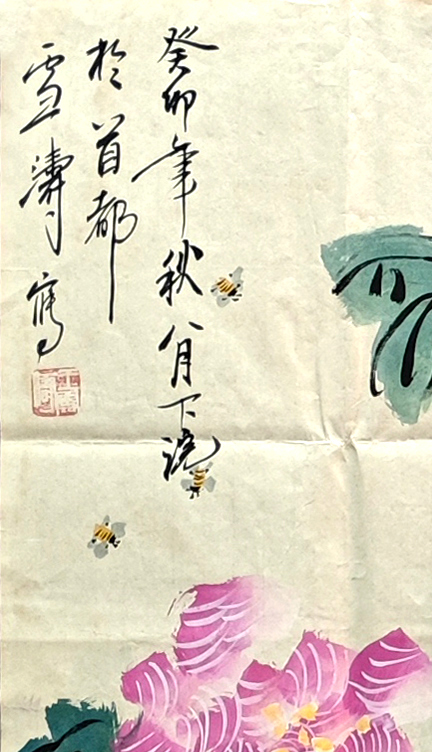 癸卯年秋八月下浣
於首都
雪濤寫